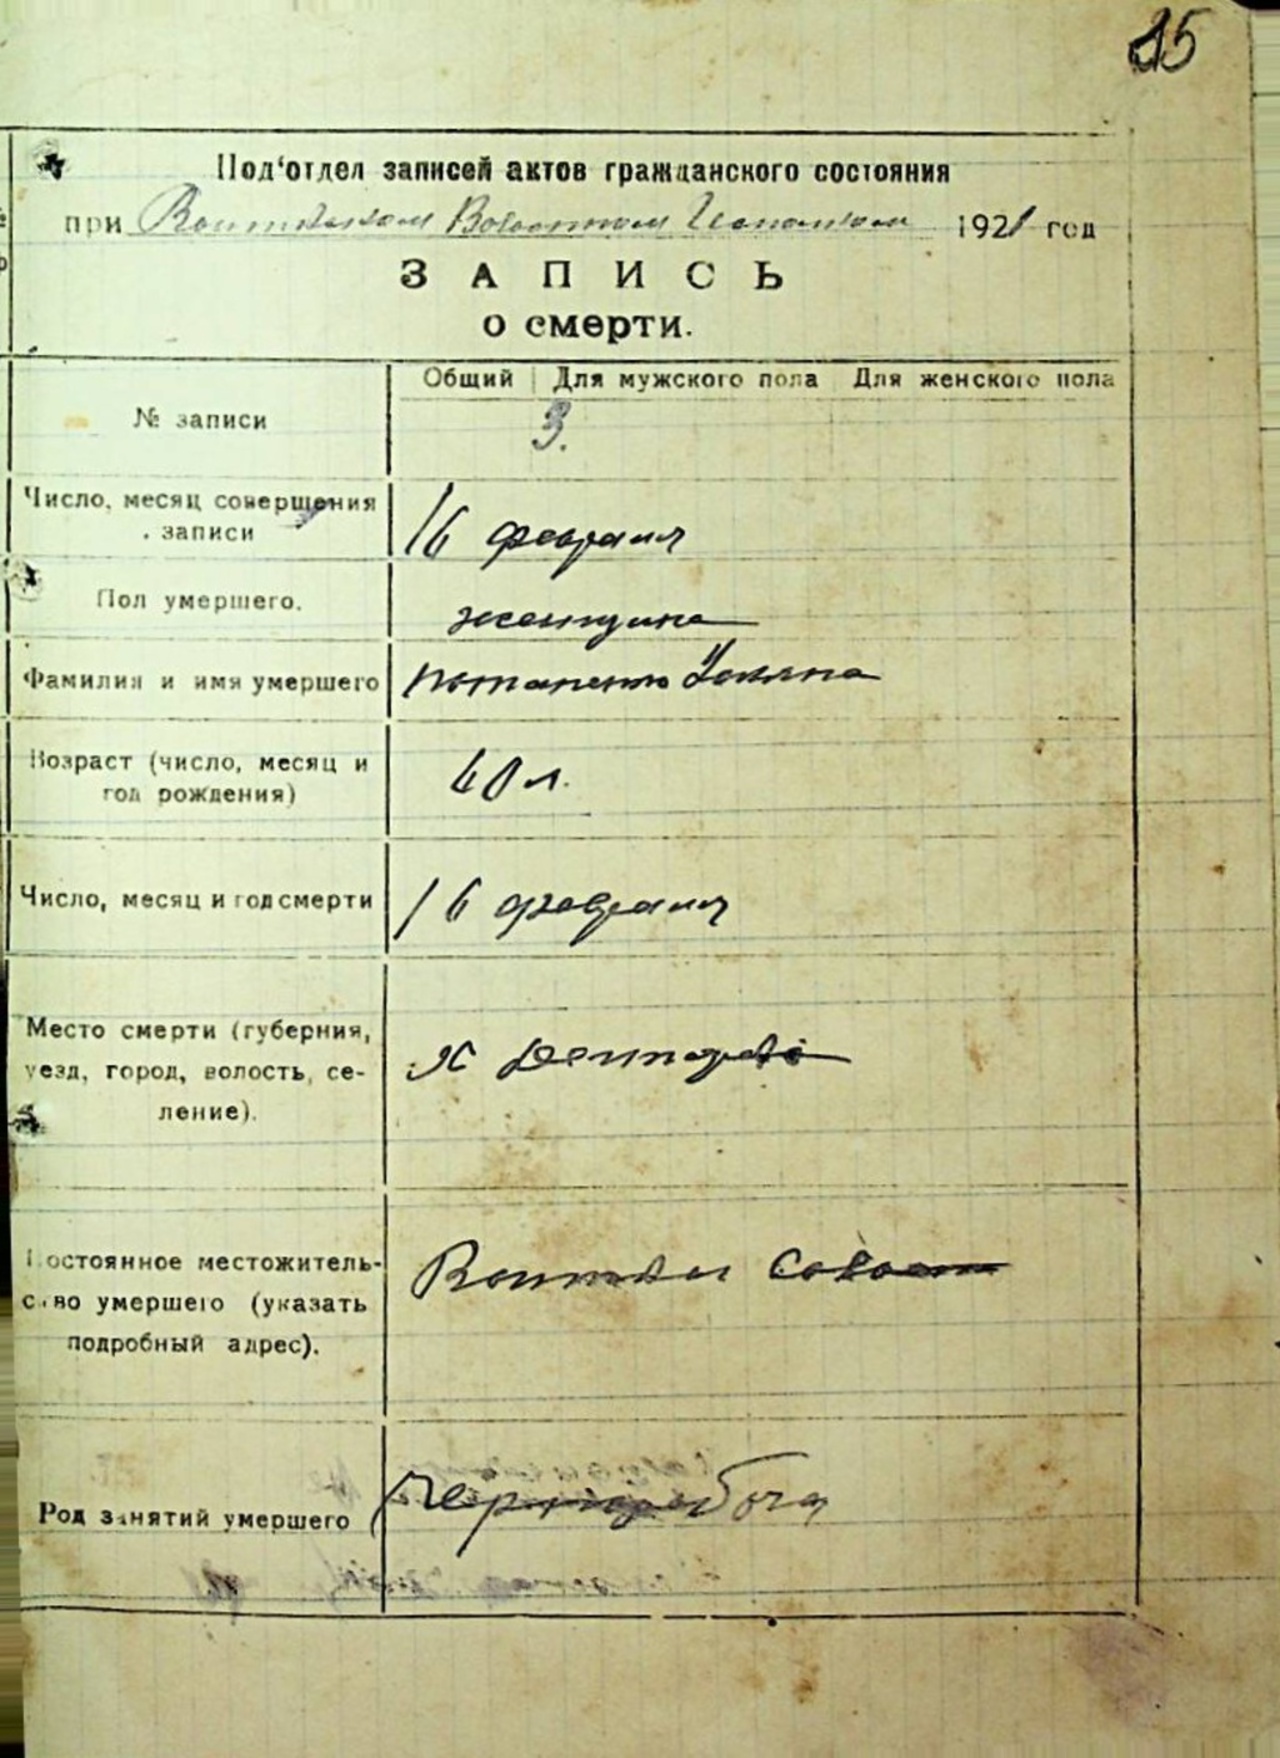 15
Под'отдел записей актов гражданского состояния
при Волостном 1921 год
ЗАПИСЬ
о смерти.
Общий Для мужского пола Для женского пола
№ записи
3.
Число, месяц совершения
записи
16 февраля
Пол умершего.
женщина
Фамилия и имя умершего
Потапенко Ульяна
Возраст (число, месяц и
год рождения)
60 л.
Число, месяц и год смерти
16 февраля
Место смерти (губерния,
уезд, город, волость, се-
ление).
х
Постоянное местожитель-
ство умершего (указать
подробный адрес).
Род занятий умершего
чернорабоч